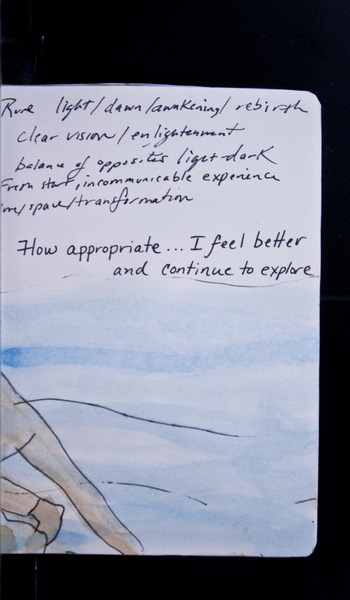 Rune light/dawn/awakening/rebirth
clear vision/enlightenment
balance of opposites light-dark
From start, incommunicable experience
time/space/transformation
How appropriate... I feel better
and continue to explore